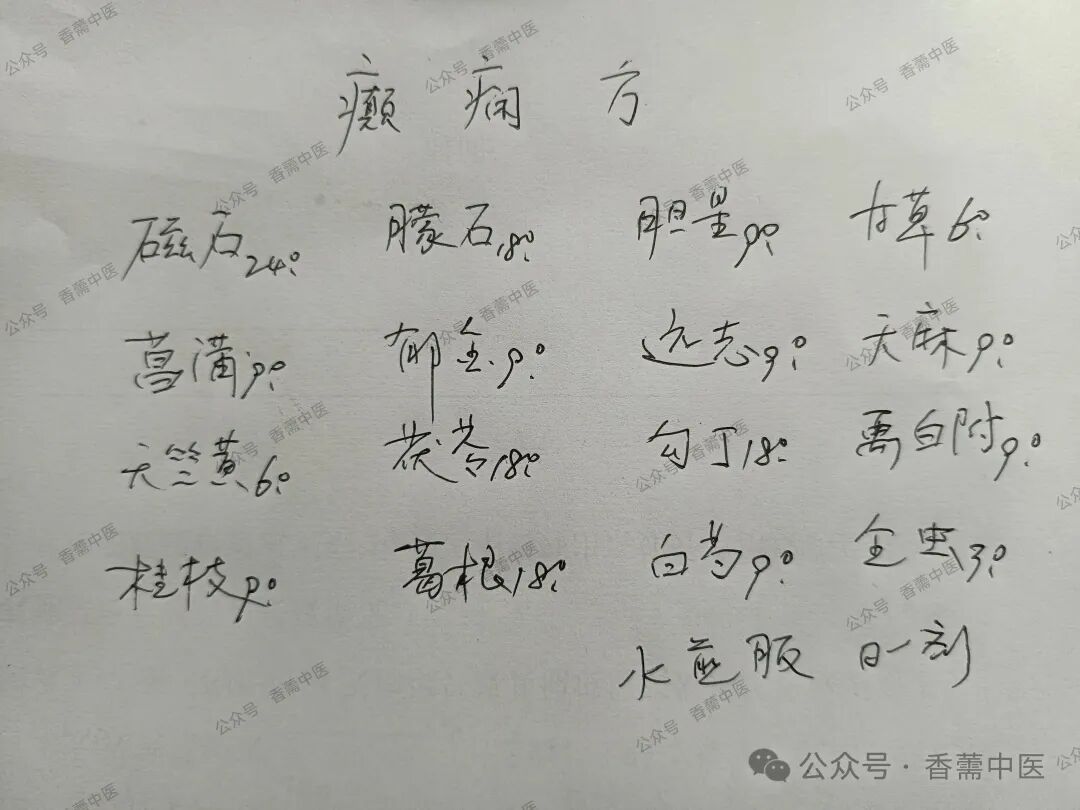 癫痫方
磁石24: 朦石18: 胆星9: 甘草6:
菖蒲9: 郁金9: 远志9: 天麻9:
天竺黄6: 茯苓18: 勾丁18: 禹白附9:
桂枝9: 葛根18: 白芍9: 全虫13:
水煎服 日一剂
公众号·香薷中医